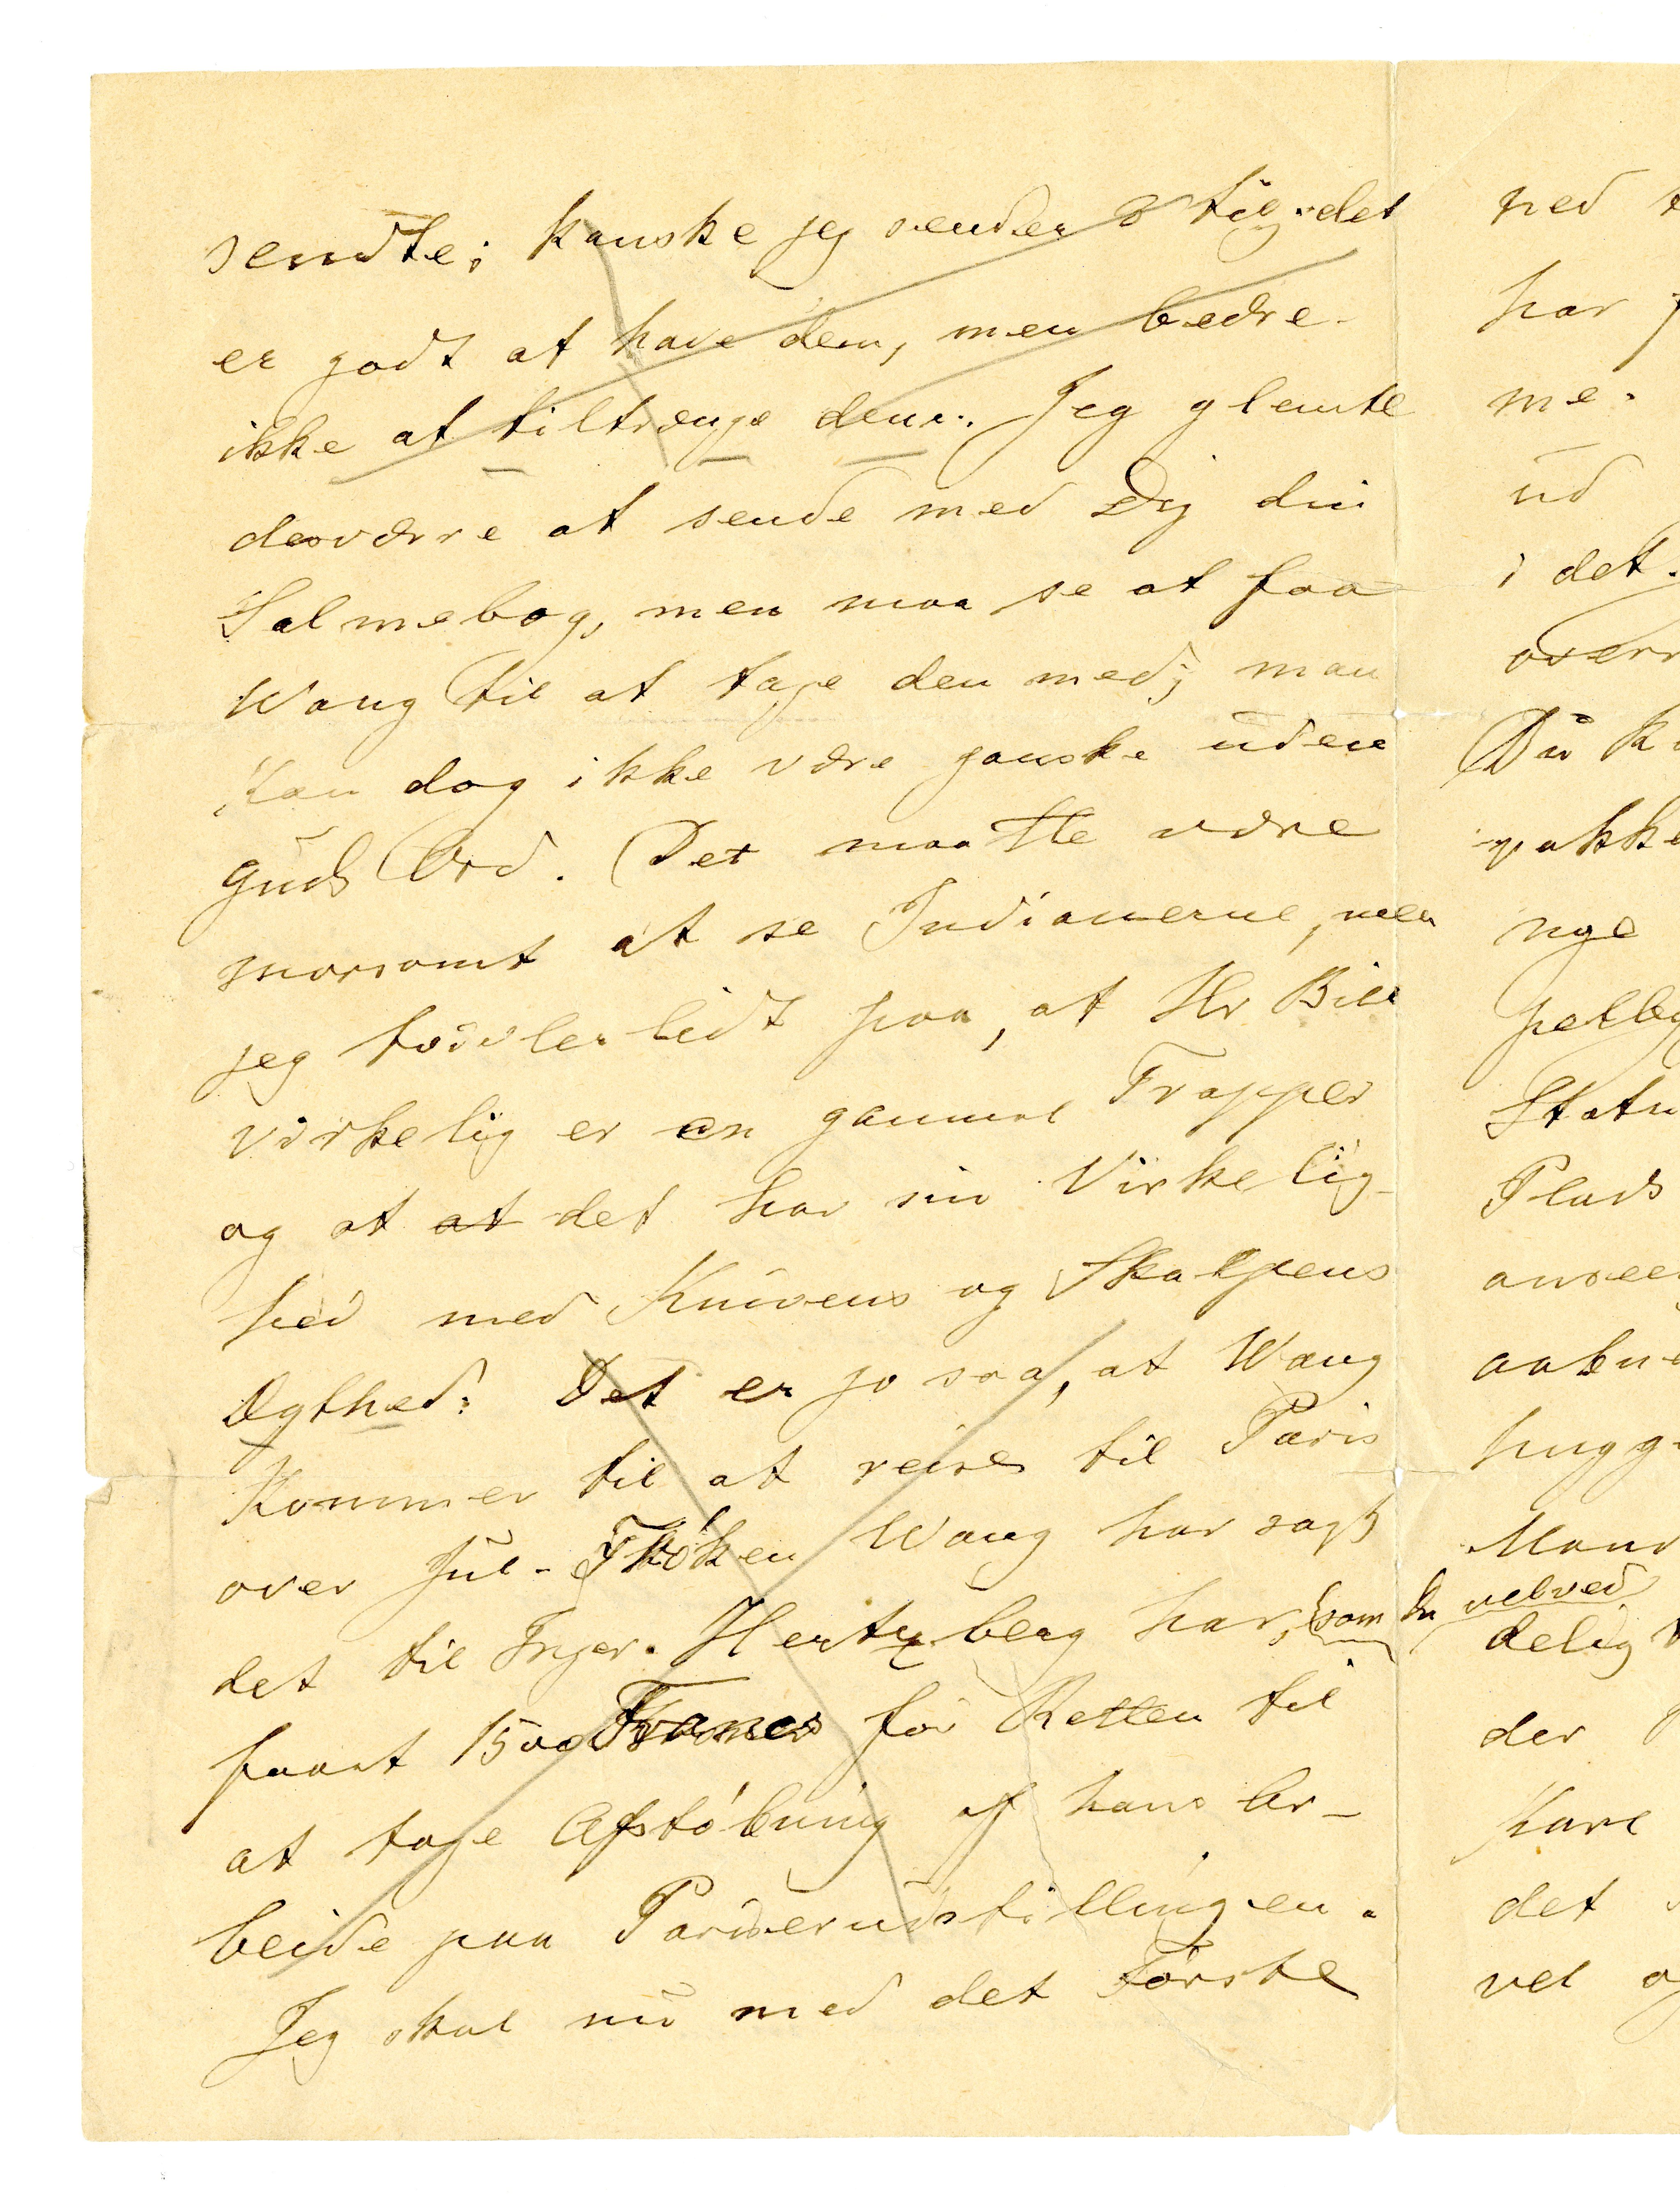 sendte; kanske jeg sender 2 til, det
er godt at have dem, men bedre
ikke at tiltrænge dem. Jeg glemte
desværre at sende med Dig din
Salmebog, men maa se at faa
Wang til at tage den med; man
kan dog ikke være ganske uden
Guds Ord. Det maatte være
morsomt at se Indianerne, men
jeg tvivler lidt paa, at Hr Bill
virkelig er en gammel Trapper
og at at det har sin Virkelig-
hed med Knivens og Skalpens
Ægthed. Det er jo saa, at Wang
kommer til at reise til Paris
over Jul - Frøken Wang har sagt
det til Inger. Hertzberg har, som Du velved
faaet 1500 Francs for Retten til
at tage Afstøbning af hans Ar-
beide paa Pariserudstillingen.
Jeg skal nu med det Første
ned
har
me.
ud
i det
overr
Du k
pakke
nye
Statu
Plads
ansee
aabne
hugg
Mand
delig
der
Kare
det
vel og